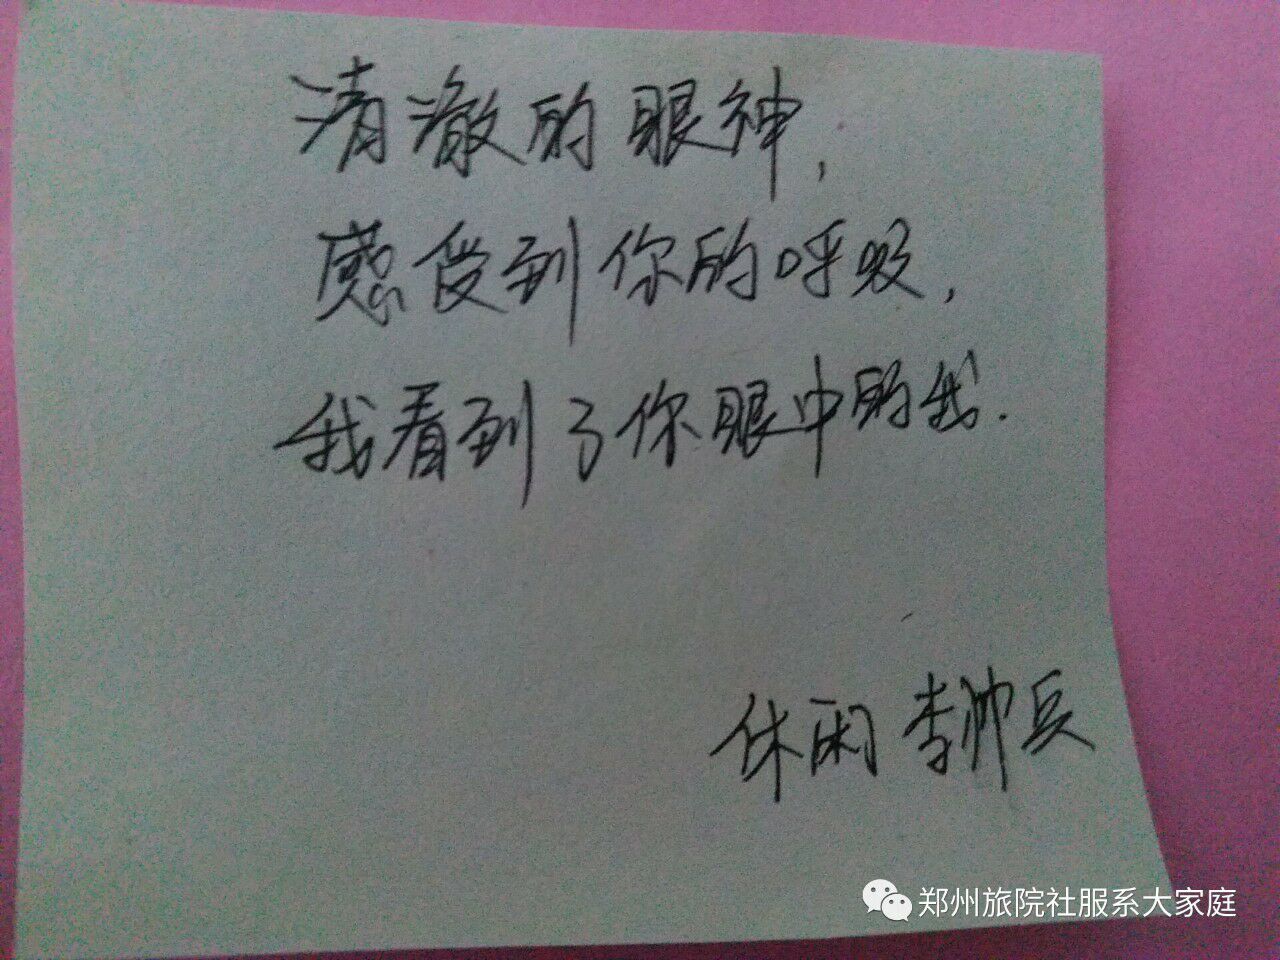 清澈的眼神,
感受到你的呼吸,
我看到了你眼中的我.
休闲 李帅兵
郑州旅院社服系大家庭